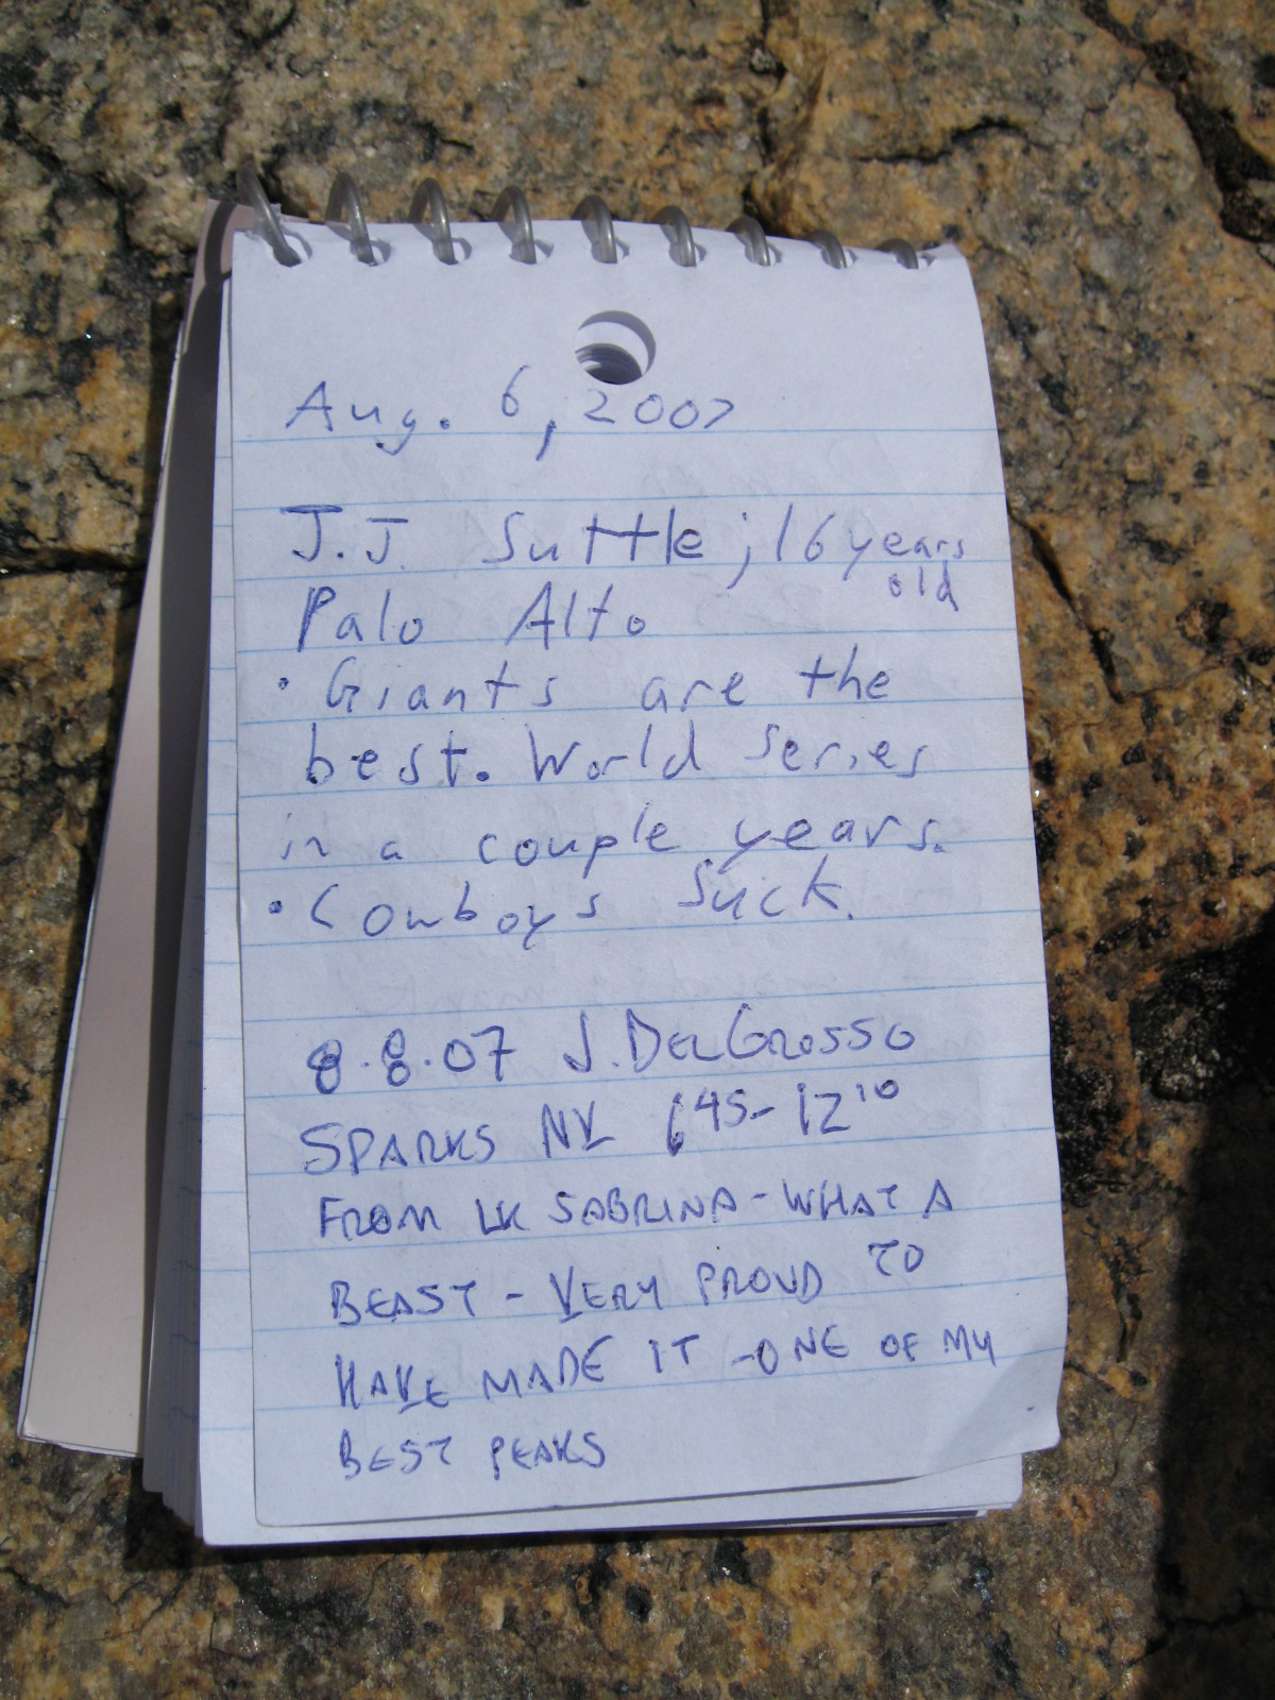 Aug. 6, 2007
J.J. Suttle; 16 years
old
Palo Alto
• Giants are the
best. World Series
in a couple years.
• Cowboys suck.
8.8.07 J. DelGrosso
SPARKS NV 6 45 - 12 10
FROM LK SABRINA - WHAT A
BEAST - VERY PROUD TO
HAVE MADE IT - ONE OF MY
BEST PEAKS